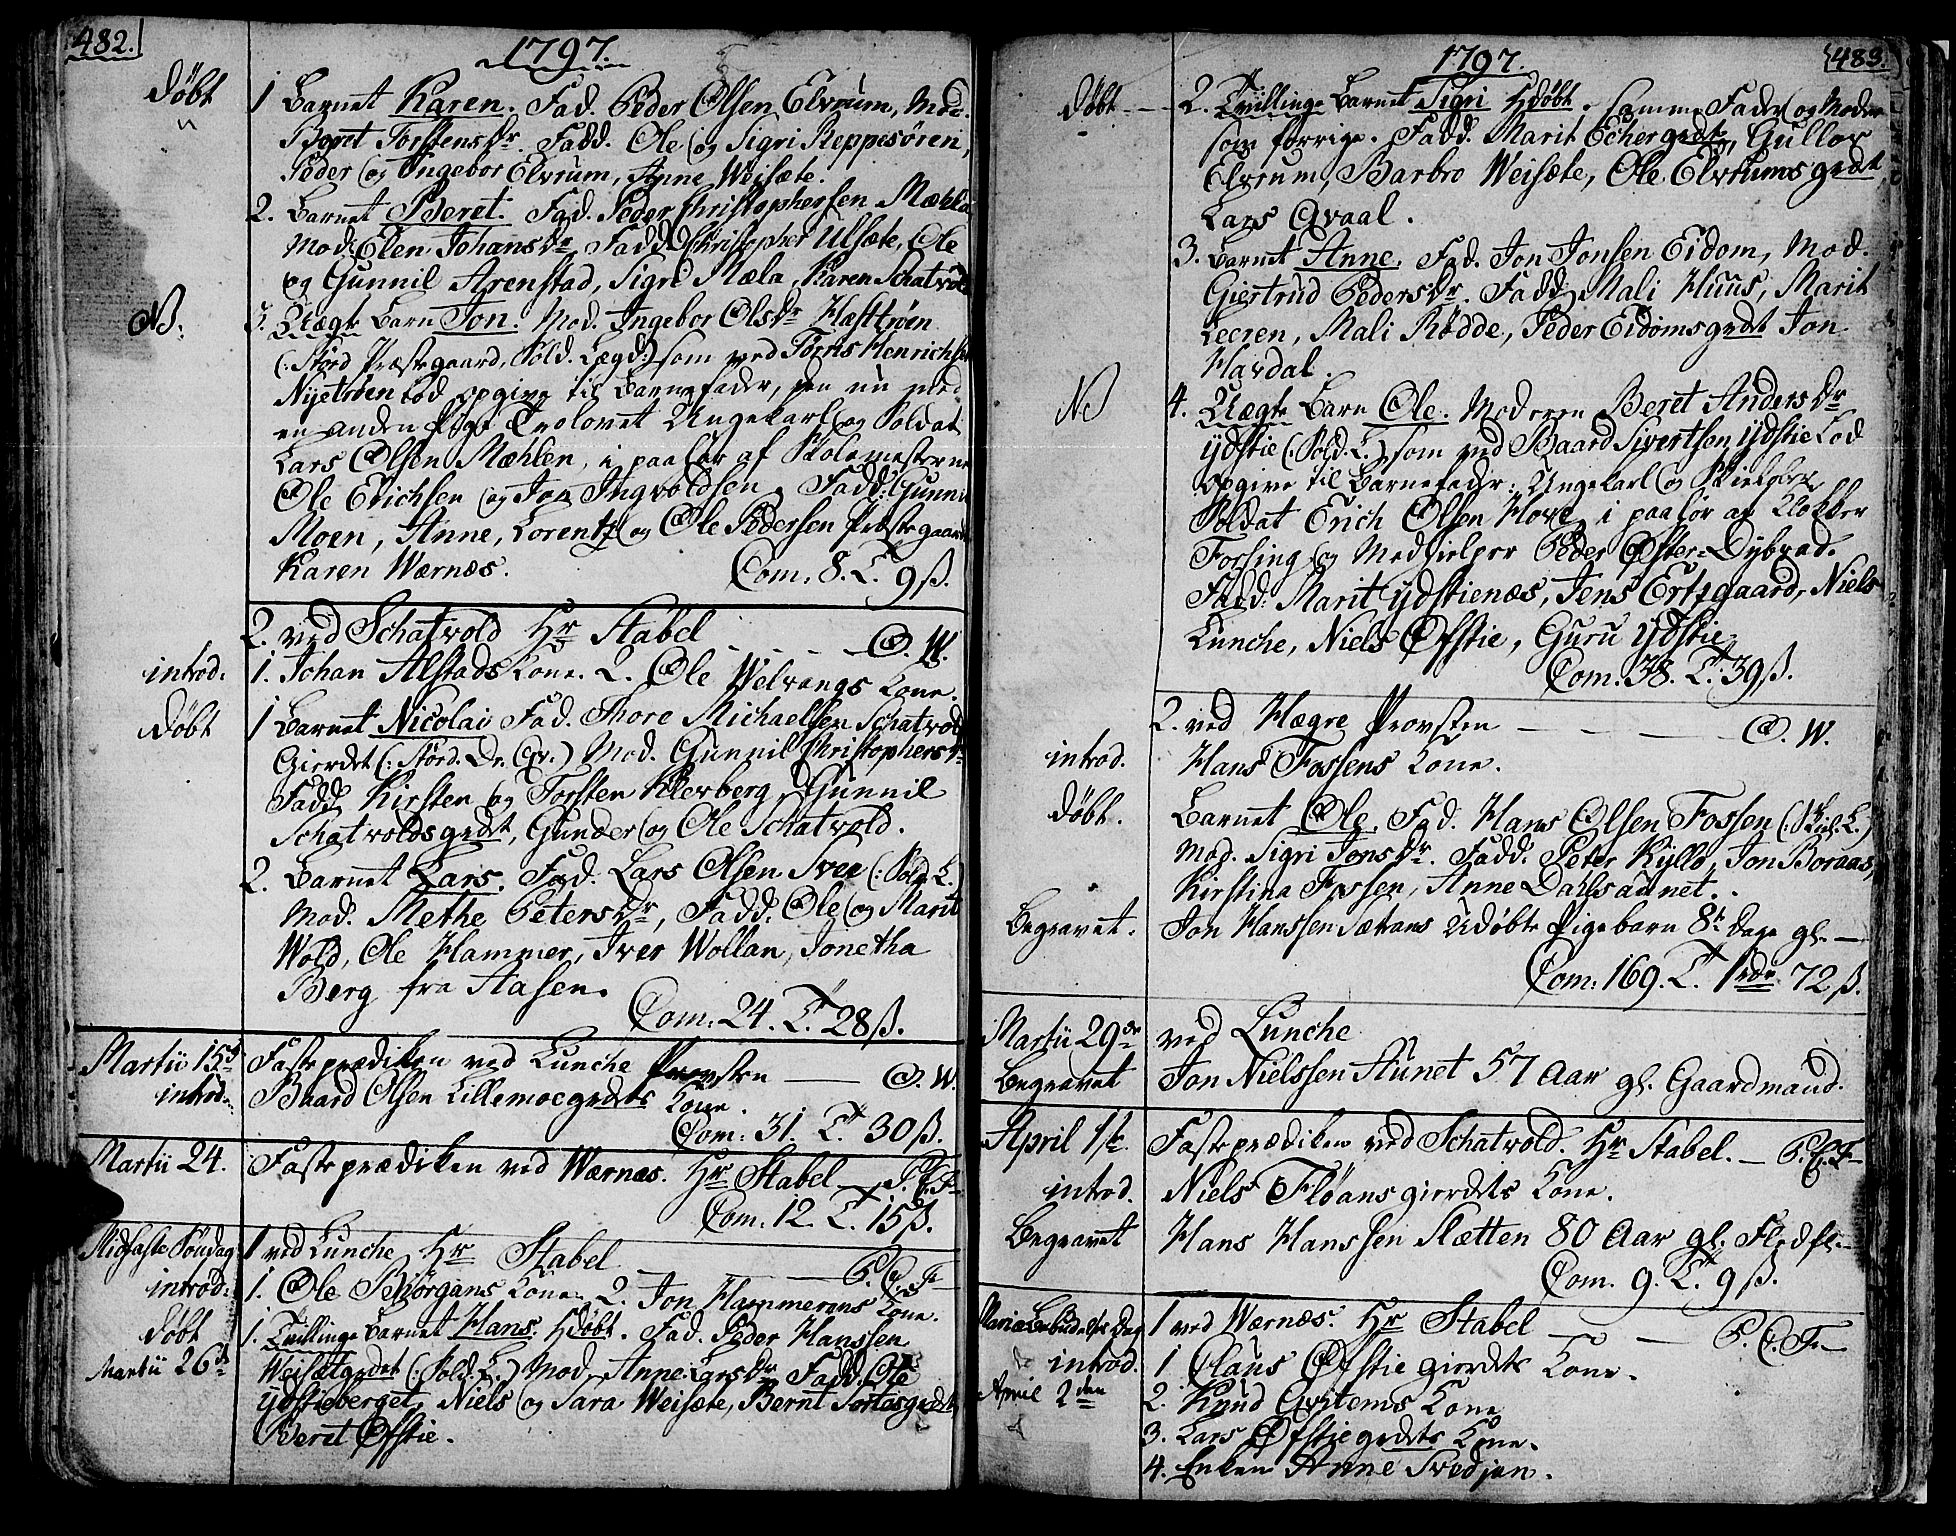 482.
1797.
Døbt
1 Barnet Karen. Fad. Peder Olsen Elvrum, Mod.
Beret Torstensdr. Fadd. Ole og Sigri Reppesøren,
Peder og Ingebor Elvrum, Anne Weisæte.
2. Barnet Beret. Fad. Peder Christophersen Mæhla
Mod. Elen Johansdr. Fadd. Christopher Ulsæte, Ole
og Gunnil Arenstad, Sigri Mæla, Karen Schatvold
NB:
3. Uægte Barn Jon. Mod. Ingebor Olsdr Hafttrøen
(: Størd Præstegaard, Sold. Lægd:) som ved Torris Henrichsen
Nyetrøen lod opgive til Barnefader, den nu med
en anden Pige Trolovet Ungekarl og Soldat
Lars Olsen Mæhlen, i paahør af Skolemesterne
Ole Erichsen og Jon Ingvoldsen. Fadd: Gunnil
Moen, Anne, Lorentz og Ole Pedersen Præstegaard
Karen Wærnæs. Com. 8. T. 9 ß.
2. ved Schatvold Hr Stabel - - - O. W.
introd. 1. Johan Alstads Kone. 2. Ole Welvangs Kone.
Døbt 1 Barnet Nicolai Fad. Thore Michaelsen Schatvold
Gierdet (: Størd. Dr. Qv.) Mod. Gunnil Christophersdr
Fadd Kirsten og Torsten Klevberg, Gunnil
Schatvoldsgedt, Gunder og Ole Schatvold.
2. Barnet Lars. Fad. Lars Olsen Svee (: Sold. L.)
Mod. Methe Petersdr, Fadd. Ole og Marit
Wold, Ole Hammer, Iver Wollan, Jonetha
Berg fra Aasen.
Com. 24. T. 28 ß.
Martii 15de Fasteprædiken ved Lunche Provsten — O. W.
introd. Baard Olsen Lillemoegedets Kone.
Com: 31. T. 30 ß.
Martii 24. Fasteprædiken ved Wærnæs. Hr Stabel — P. C. F
Com. 12. T. 15 ß.
Midfaste Søndag 1 ved Lunche Hr Stabel — P. C. F
introd. 1. Ole Biørgans Kone. 2. Jon Hammerens Kone.
Døbt 1. Tvillinge Barnet Hans. Hdøbt. Fad. Peder Hanssen
Martii 26de Weisætgedet (: Sold. L.) Mod. Anne Larsdr Fadd. Ole
Ydstieberget, Niels og Sara Weisæte, Bernt
Beret Øfstie.
483.
1797.
Døbt — 2. Tvillinge Barnet Sigri Hdøbt. Samme Fader og Moder
som forrige. Fadd. Marit Echergedt, Gullov
Elvrum, Barbro Weisæte, Ole Elvrumsgedt,
Lars Qvaal.
3. Barnet Anne. Fad. Jon Jonsen Eidom, Mod.
Giertrud Pedersdr. Fadd Mali Huus, Marit
Leeren, Mali Rødde, Peder Eidomsgedt Jon
Havdal.
NB 4. Uægte Barn Ole. Moderen Beret Andersdr
Ydstie (: Sold. L.) som ved Baard Sivertsen Ydstie lod
opgive til Barnefader: Ungekarl og
Soldat Erich Olsen Hove i paahør af Klokker
Forsing og Medhielper Peder Øster-Dybvad.
Fadd: Marit Ydstienæs, Jens Ertzgaard, Niels
Lunche, Niels Øfstie, Guru Ydstie
Com. 38. T. 39 ß.
2. ved Hægre Provsten — — — O. W.
introd. Hans Fossens Kone.
Døbt. Barnet Ole. Fad. Hans Olsen Fossen
Mod. Sigri Jonsdr. Fadd. Peter Kyllo, Jon Boraas,
Kirstina Fossen, Anne Dahlsaunet.
Begravet. Jon Hanssen Sætrans Udøbte Pigebarn 8te Dage gl. —
Com: 169. T. 1 rdr 72 ß.
Martii 29de ved Lunche
Begravet Jon Nielssen Aunet 57 Aar gl. Gaardmand.
April 1ste Fasteprædiken ved Schatvold. Hr Stabel. — P. C. F
introd. Niels Fløans gierdets Kone.
Begravet Hans Hanssen Slætten 80 Aar gl.
Com. 9. T. 9 ß.
Mariæ Bebudelse Dag 1 ved Wærnæs. Hr Stabel — — P. C. F
introd. 1 Claus Øfstie gierdets Kone.
April 2den 2. Knud Qvitems Kone
3. Lars Øfstiegedets Kone.
4. Enken Anne Svedjen.